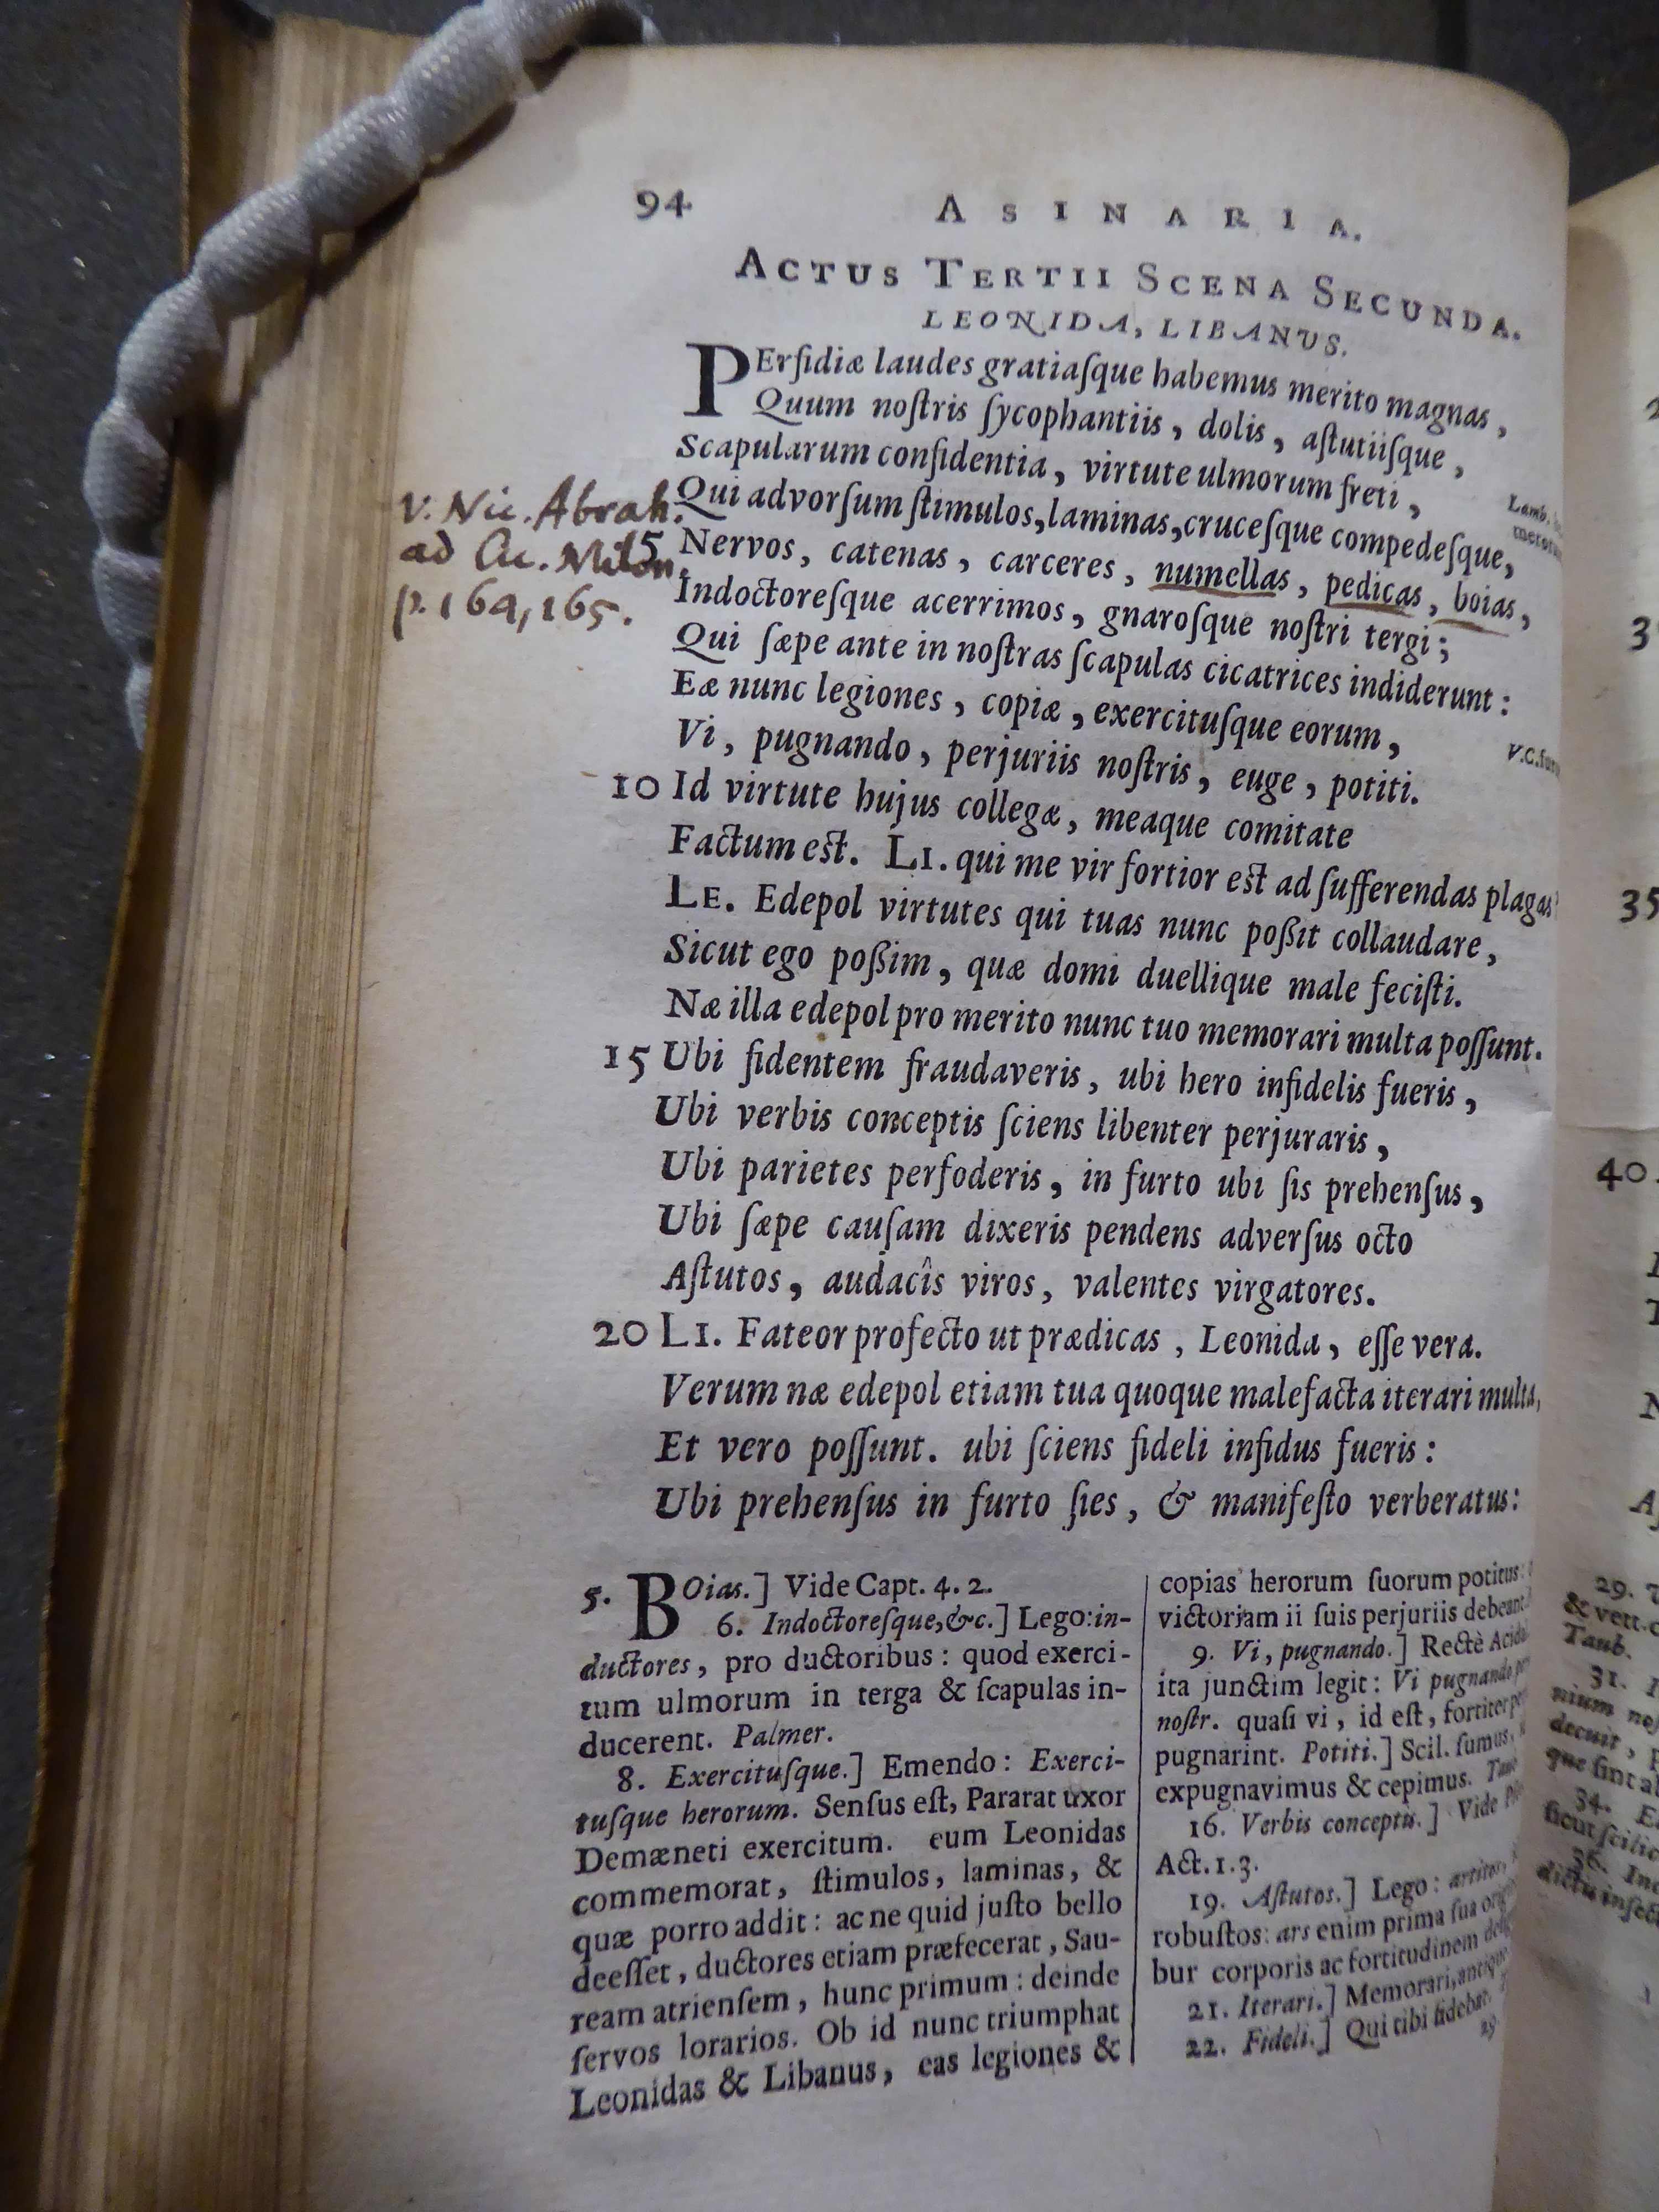 94 ASINARIA.
ACTUS TERTII SCENA SECUNDA.
LEONIDA, LIBANUS.
PErſidiæ laudes gratiaſque habemus merito magnas,
Quum noſtris ſycophantiis, dolis, aſtutiiſque,
Scapularum confidentia, virtute ulmorum freti,
Qui advorſum ſtimulos, laminas, cruceſque compedeſque,
Lamb.
v. Nic. Abrah.
ad Cic. Milon.
p. 164, 165.
5 Nervos, catenas, carceres, numellas, pedicas, boias,
Indoctoreſque acerrimos, gnaroſque noſtri tergi;
Qui ſæpe ante in noſtras ſcapulas cicatrices indiderunt:
Eæ nunc legiones, copiæ, exercituſque eorum,
V.C.
Vi, pugnando, perjuriis noſtris, euge, potiti.
10 Id virtute hujus collegæ, meaque comitate
Factum est. LI. qui me vir fortior est ad ſufferendas plagas?
LE. Edepol virtutes qui tuas nunc poßit collaudare,
Sicut ego poßim, quæ domi duellique male feciſti.
Næ illa edepol pro merito nunc tuo memorari multa poſſunt.
15 Ubi fidentem fraudaveris, ubi hero infidelis fueris,
Ubi verbis conceptis ſciens libenter perjuraris,
Ubi parietes perfoderis, in furto ubi ſis prehenſus,
Ubi ſæpe cauſam dixeris pendens adverſus octo
Aſtutos, audacîs viros, valentes virgatores.
20 LI. Fateor profecto ut prædicas, Leonida, eſſe vera.
Verum næ edepol etiam tua quoque malefacta iterari multa,
Et vero poſſunt. ubi ſciens fideli infidus fueris:
Ubi prehenſus in furto ſies, & manifeſto verberatus:
5. BOias.] Vide Capt. 4. 2.
6. Indoctoreſque, &c.] Lego: in-
ductores, pro ductoribus: quod exerci-
tum ulmorum in terga & ſcapulas in-
ducerent. Palmer.
8. Exercituſque.] Emendo: Exerci-
tuſque herorum. Senſus eſt, Pararat uxor
Demæneti exercitum. eum Leonidas
commemorat, ſtimulos, laminas, &
quæ porro addit: ac ne quid juſto bello
deeſſet, ductores etiam præfecerat, Sau-
ream atrienſem, hunc primum: deinde
ſervos lorarios. Ob id nunc triumphat
Leonidas & Libanus, eas legiones &
copias herorum ſuorum potitus:
victoriam ii ſuis perjuriis debeant
9. Vi, pugnando.] Rectè Acid
ita junctim legit: Vi pugnando
noſtr. quaſi vi, id eſt, fortiter
pugnarint. Potiti.] Scil. ſumus,
expugnavimus & cepimus.
16. Verbis conceptis.] Vide
Act. 1. 3.
19. Aſtutos.] Lego: artitos,
robuſtos: ars enim prima ſua
bur corporis ac fortitudinem
21. Iterari.] Memorari,
22. Fideli.] Qui tibi fidebat.
3
35
40
29.
& vett.
Taub.
31.
nium
decuit,
que ſint
34.
ſicut ſcilic
36.